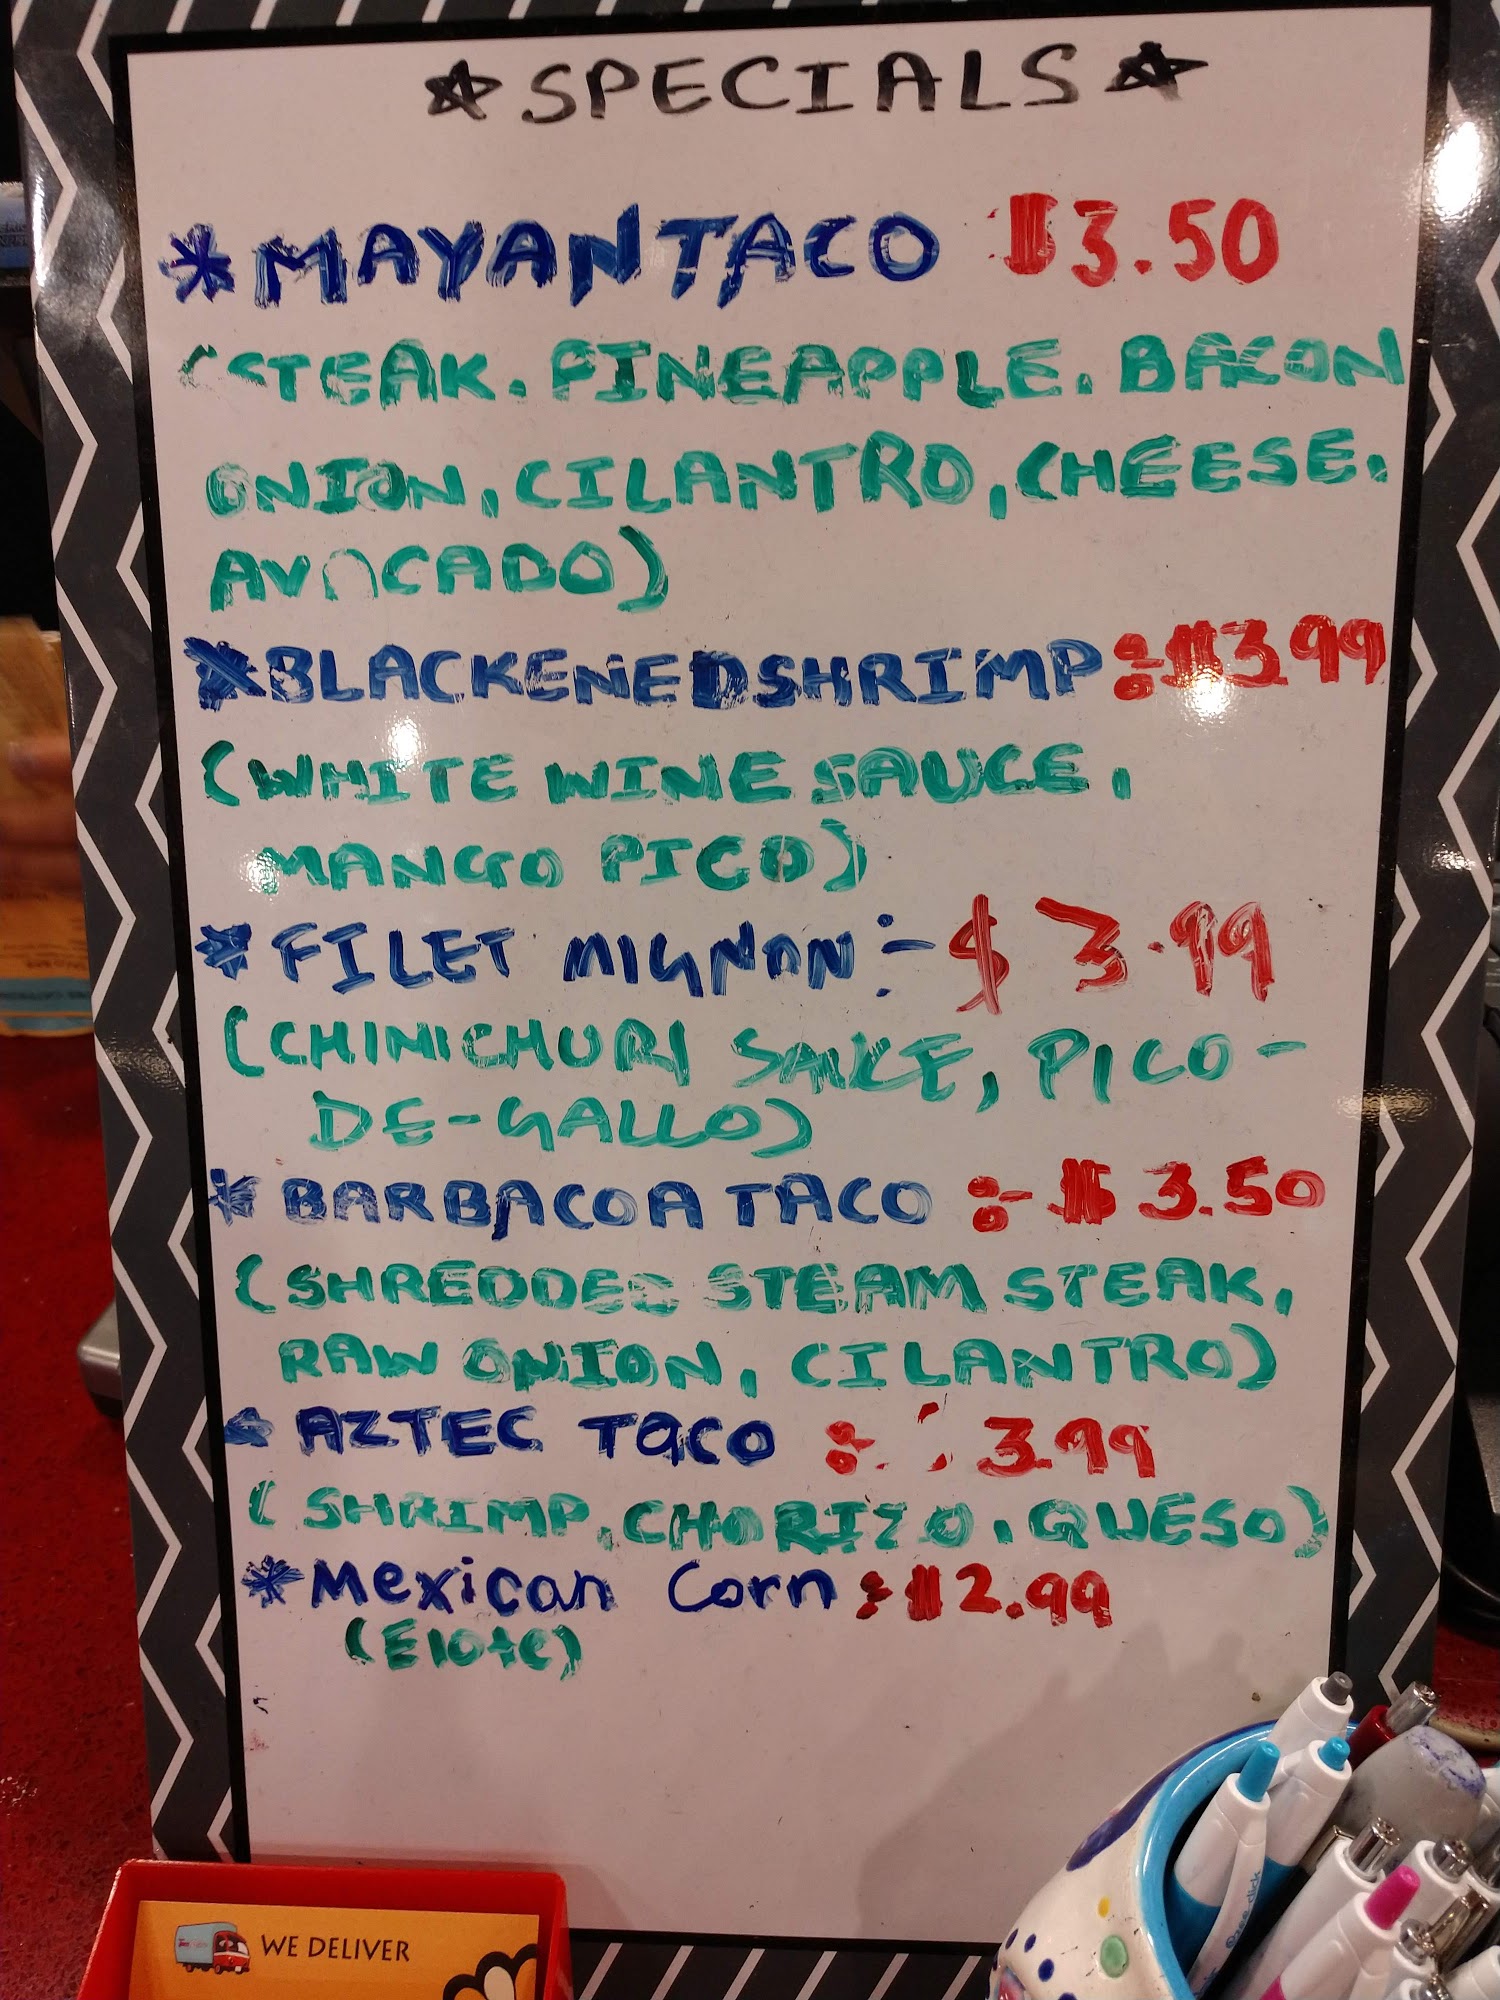 ☆SPECIALS☆
*MAYAN TACO $3.50
(STEAK. PINEAPPLE. BACON
ONION, CILANTRO, CHEESE,
AVOCADO)
*BLACKENED SHRIMP:-$3.99
(WHITE WINE SAUCE,
MANGO PICO)
*FILET MIGNON:- $3.99
(CHIMICHURI SAUCE, PICO-
DE-GALLO)
*BARBACOA TACO :- $3.50
(SHREDDED STEAM STEAK,
RAW ONION, CILANTRO)
* AZTEC TACO :- 3.99
(SHRIMP, CHORIZO, QUESO)
*Mexican Corn:-$2.99
(Elote)
WE DELIVER